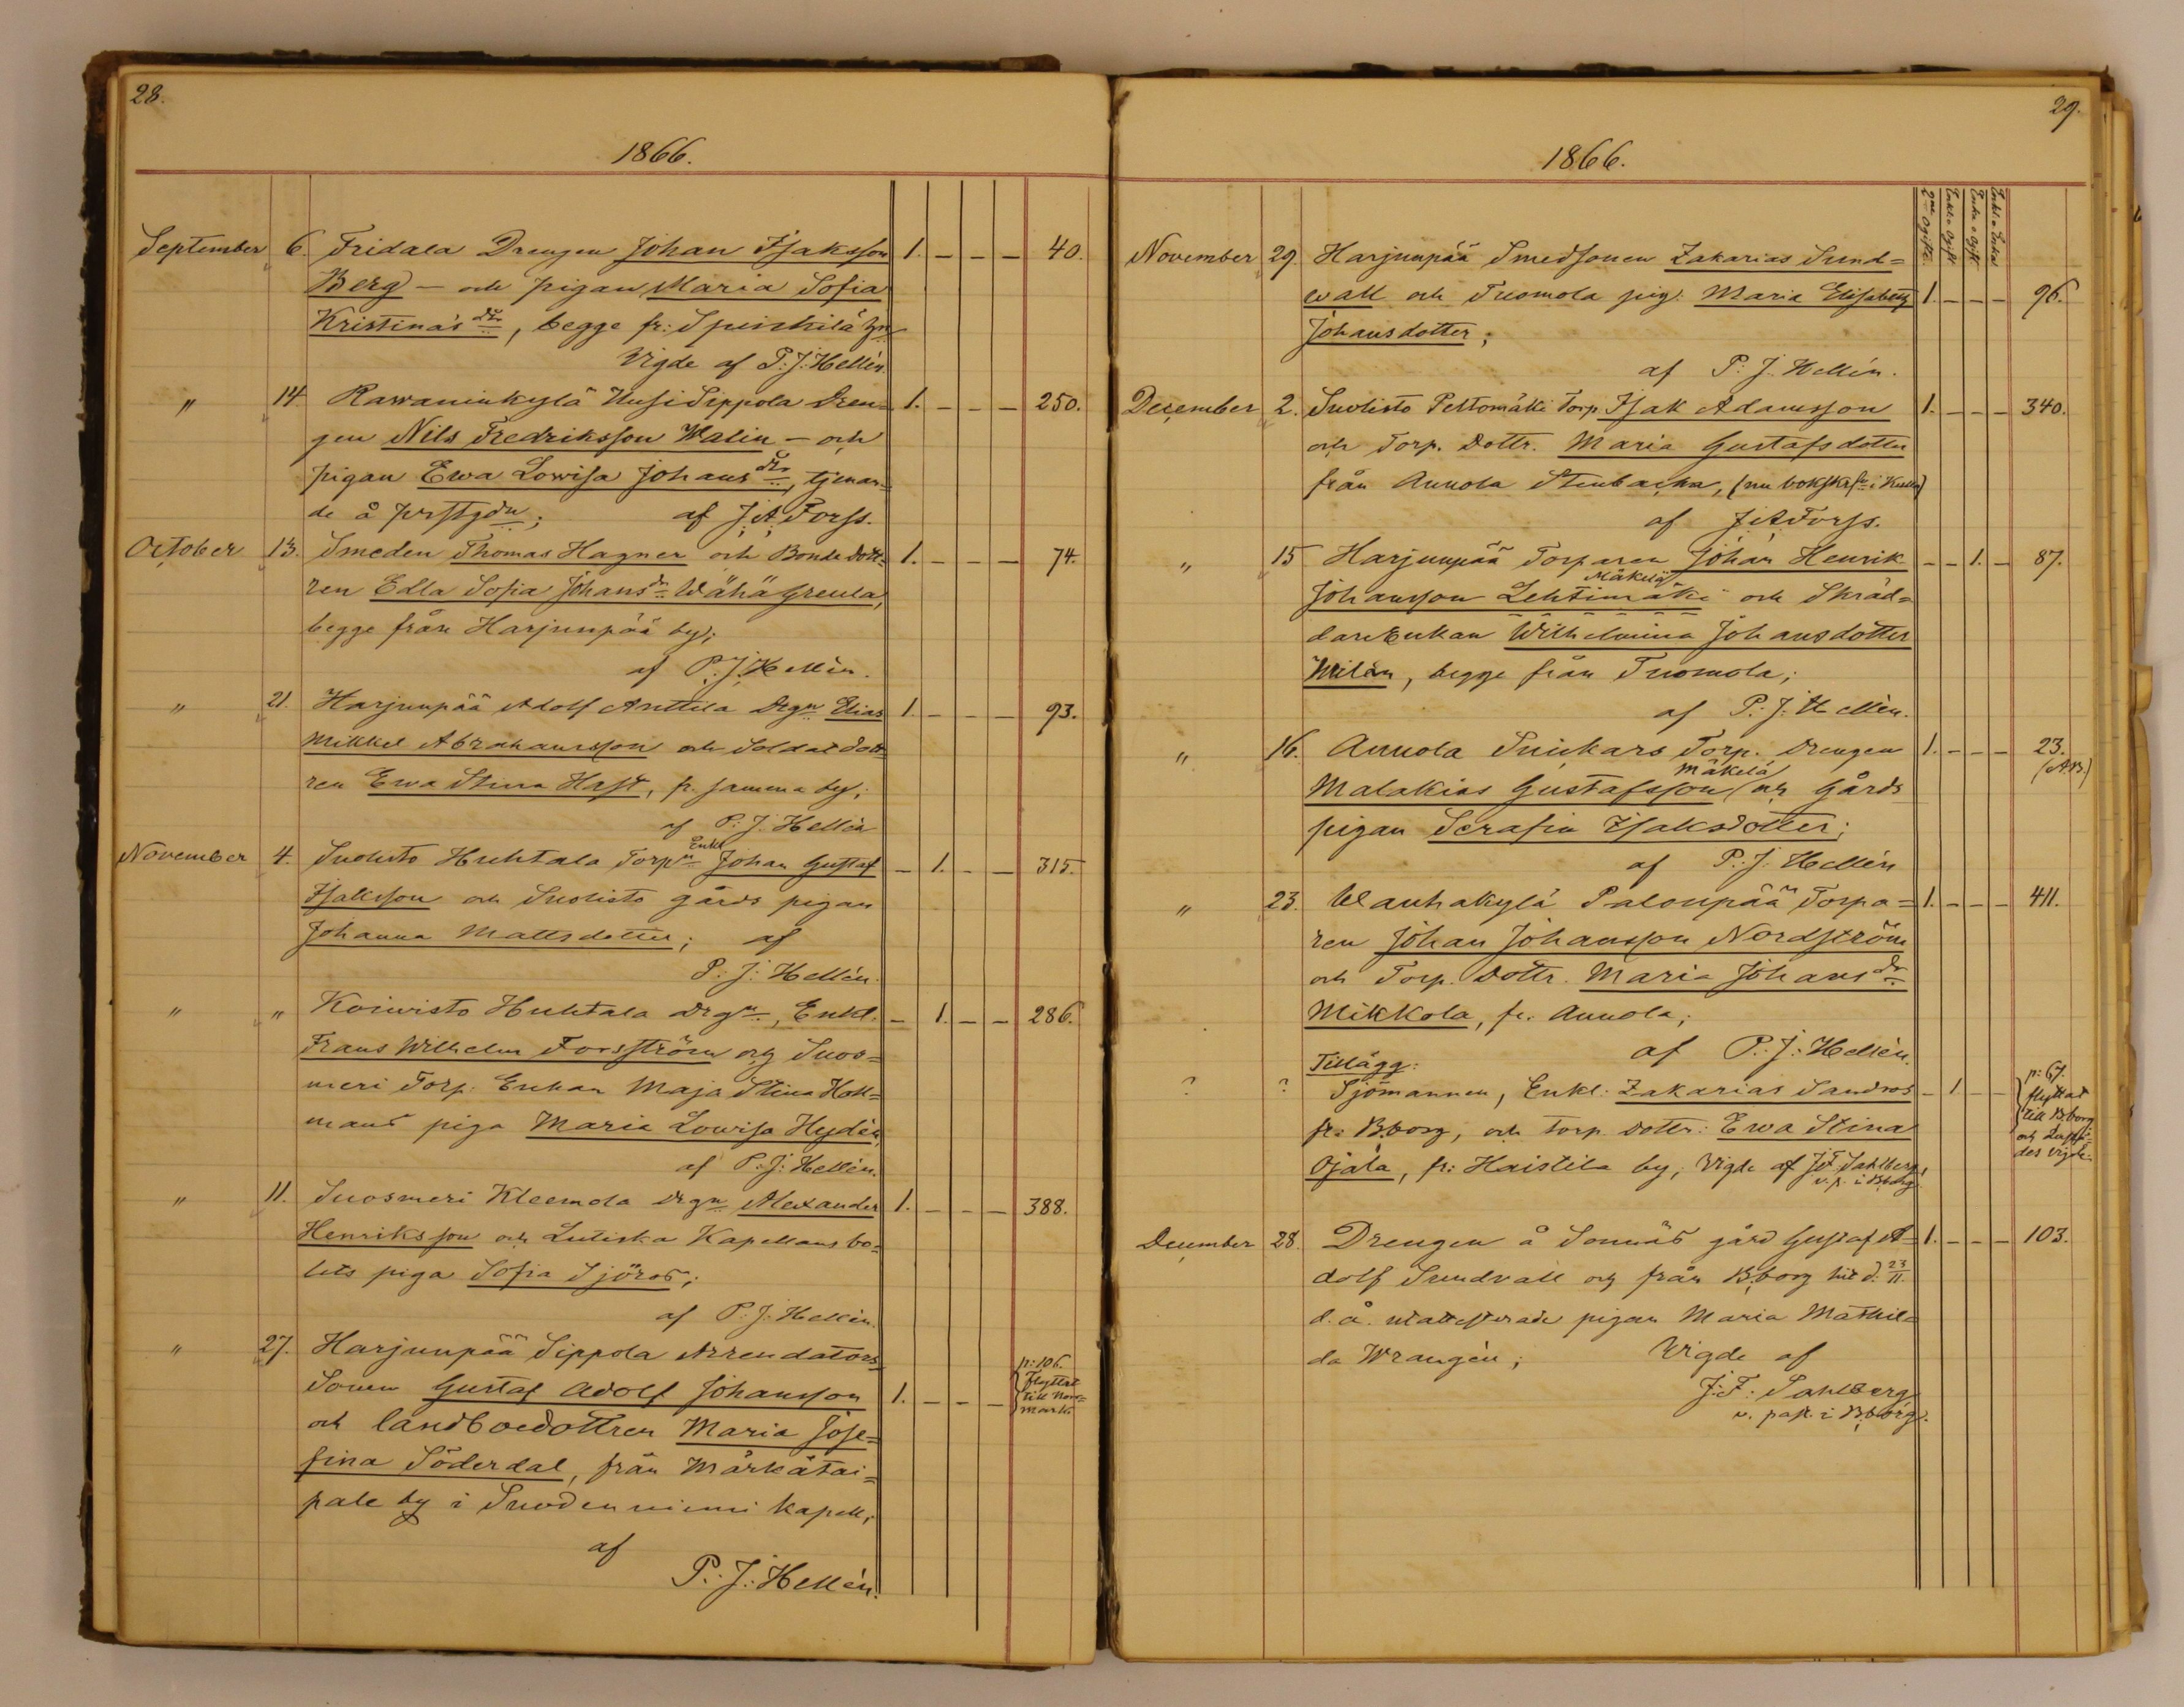 28.
1866.
September 6. Fridala Drengen Johan Isaksson 1. – – – 40.
Berg – och pigan Maria Sofia
Kristinas dr, begge fr:
Vigde af P: J: Hellén.
" 14. Rawaninkylä Uusi Seppola dren= 1. – – – 250.
gen Nils Fredriksson Walin – och
pigan Ewa Lowisa Johans dr, tjenan=
de å prstgdn; af J. A. Forss.
October 13. Smeden Thomas Hagner och Bonde dott= 1. – – – 74.
ren Edla Sofia Johans dr Wähä Greula,
begge från Harjunpää by;
af P: J: Hellén.
" 21. Harjunpää Adolf Anttila Drgn Elias 1. – – – 93.
Mikkel Abrahamsson och Soldat dott
ren Ewa Stina Hast, fr. samma by;
af P: J: Hellén
November 4. Suolisto Huhtala Torpn Enkl Johan Gustaf – 1. – – 315.
Isaksson och Suolisto gårds pigan
Johanna Mattsdotter; af
P: J: Hellén.
" " Koivisto Huhtala drgn, Enkl. – 1. – – 286.
Frans Wilhelm Forsström och Suos=
meri Torp. Enkan Maja Stina Holl=
mans piga Maria Lowisa Hydén
af P: J: Hellén.
" 11. Suosmeri Kleemola drgn Alexander 1. – – – 388.
Henriksson och Luteska Kapellans bo=
lets piga Sofia Sjöros;
af P: J: Hellén.
" 27. Harjunpää Sippola Arrendators
Sonen Gustaf Adolf Johansson 1. – – – p: 106. flyttat till Norr=mark
och landboedottren Maria Jose=
fina Söderdal, från Märkätai=
pale by i Suodenniemi Kapell;
af
P: J: Hellén.
29.
1866.
2ne Ogifte. Enkl. o Ogift Enka o Ogift Enkl. o Enka
November 29. Harjunpää Smedsonen Zakarias Sund=
wall och Tuomola pig: Maria Elisabeth 1. – – – 96.
Johansdotter;
af P: J: Hellén.
December 2. Suolisto Peltomäki Torp. Isak Adamsson 1. – – – 340.
och Torp. dottr. Maria Gustafsdotter
från Annola Stenbacka, (nu i Kulla)
af J. A Forss.
" 15 Harjunpää Torparen Johan Henrik – – 1. – 87.
Mäkelä
Johansson Lehtimäki och Skräd=
dareenkan Wilhelmina Johansdotter
Milén, begge från Tuomola;
af P: J: Hellén.
" 16. Annola Snickars Torp. drengen 1. – – – 23. (A.B.)
Mäkelä
Malakias Gustafsson och Gårds
pigan Serafia Isaksdotter;
af P: J: Hellén
" 23. Wanhakylä Palonpää Torpa= 1. – – – 411.
ren Johan Johansson Nordström
och Torp. dottr. Maria Johans dr
Mikkola, fr. Annola;
af P: J: Hellén.
Tillägg:
? ? Sjömannen, Enkl: Zakarias Sandros – 1. – – p: 67. flyttat till B:borg och
fr: B:borg, och torp dottr: Ewa Stina
Ojala, fr: Haistila by; Vigde af J.F. Sahlberg,
v. p. i B:borg.
December 28. Drengen å Sonnäs gård Gustaf A= 1. – – – 103.
dolf Sundvall och från B:borg hit d. 23/11.
d. å. utattesterade pigan Maria Mathil=
da Wrangén; Vigde af
J: F: Sahlberg
v. past. i B:borg.